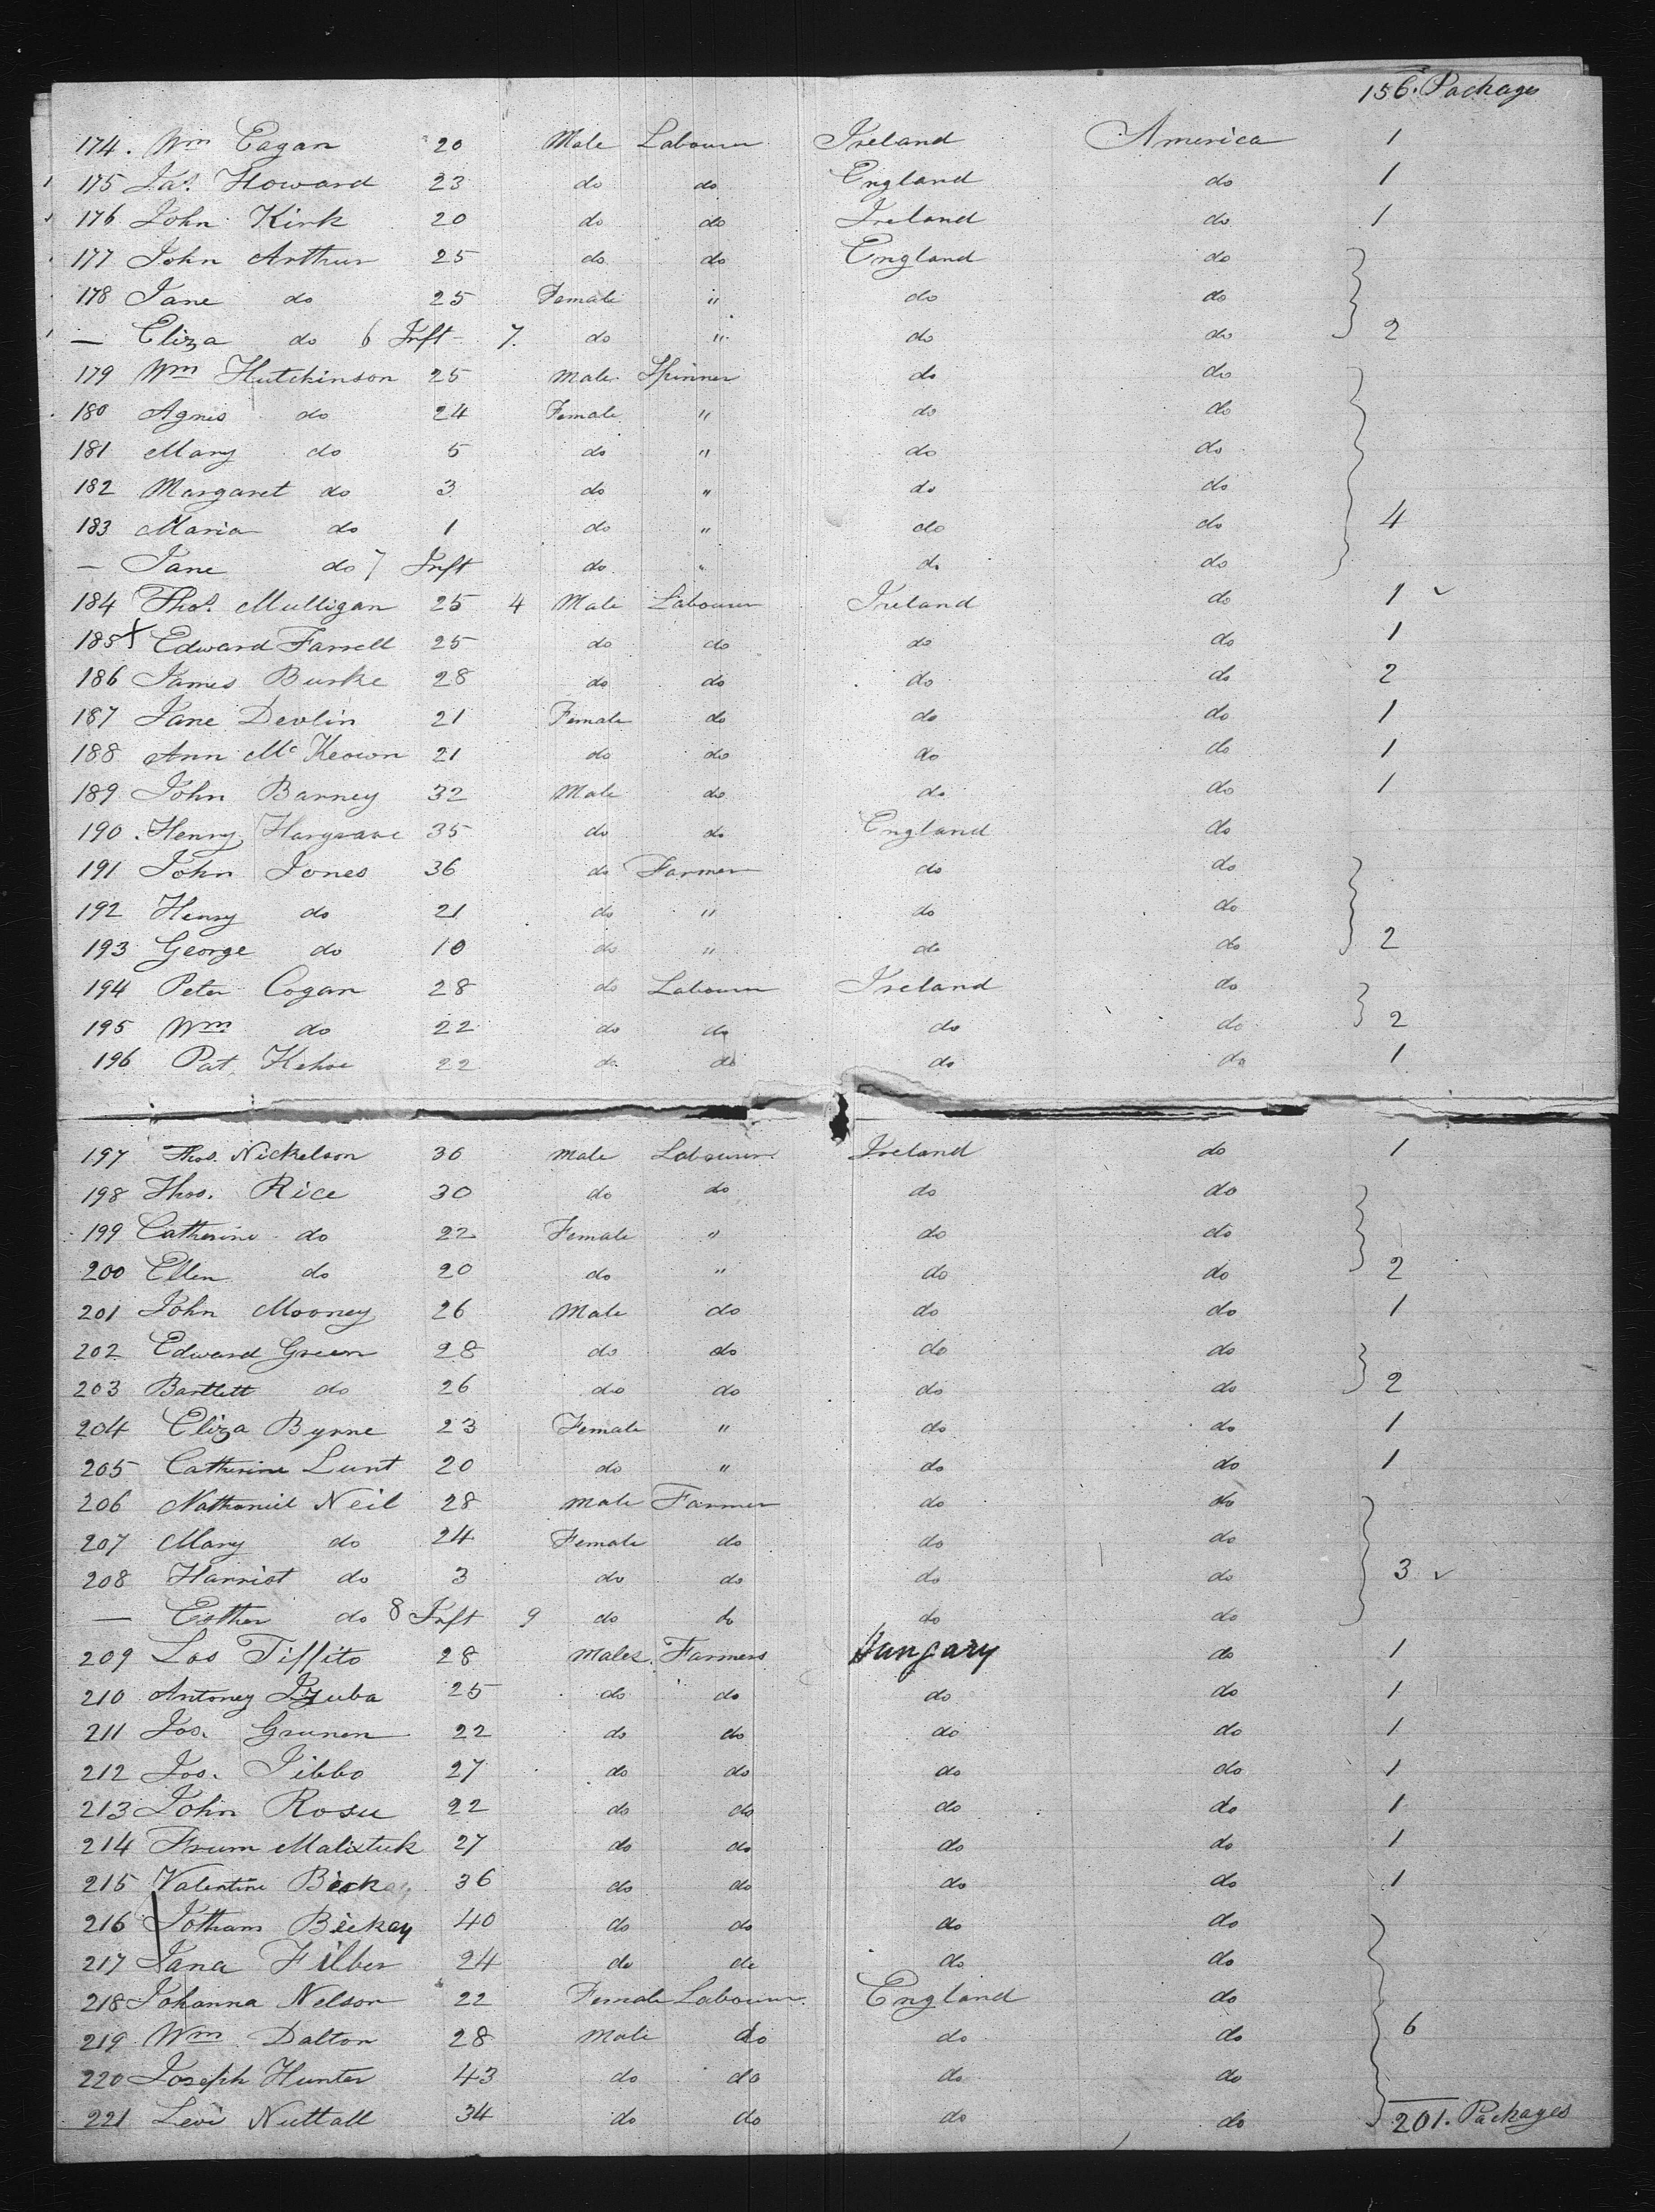 156. Packages
174. Wm Eagan 20 Male Labourer Ireland America 1
175 Jas. Howard 23 do do England do 1
176 John Kirk 20 do do Ireland do 1
177 John Arthur 25 do do England do
178 Jane do 25 Female " do do
— Eliza do 6 Inft 7. do " do do 2
179 Wm Hutchinson 25 Male Spinner do do
180 Agnes do 24 Female " do do
181 Mary do 5 do " do do
182 Margaret do 3 do " do do
183 Maria do 1 do " do do 4
— Jane do 7 Inft do " do do
184 Thos. Mulligan 25 4 Male Labourer Ireland do 1
185 X Edward Farrell 25 do do do do 1
186 James Burke 28 do do do do 2
187 Jane Devlin 21 Female do do do 1
188 Ann McKeown 21 do do do do 1
189 John Barney 32 Male do do do 1
190. Henry Hargrave 35 do do England do
191 John Jones 36 do Farmer do do
192 Henry do 21 do " do do
193 George do 10 do " do do 2
194 Peter Cogan 28 do Labourer Ireland do
195 Wm do 22 do do do do 2
196 Pat Kehoe 22 do do do do 1
197 Thos. Nickelson 36 Male Labourer Ireland do 1
198 Thos. Rice 30 do do do do
199 Catherine do 22 Female " do do
200 Ellen do 20 do " do do 2
201 John Mooney 26 Male do do do 1
202 Edward Green 28 do do do do
203 Bartlett do 26 do do do do 2
204 Eliza Byrne 23 Female " do do 1
205 Catherine Lunt 20 do " do do 1
206 Nathaniel Neil 28 Male Farmer do do
207 Mary do 24 Female do do do
208 Harriot do 3 do do do do 3
— Esther do 8 Inft 9 do do do do
209 Los Tiffito 28 Males Farmers Hungary do 1
210 Antoney 25 do do do do 1
211 Jos. Grunen 22 do do do do 1
212 Jos. 27 do do do do 1
213 John Rosu 22 do do do do 1
214 Frum 27 do do do do 1
215 Valentine 36 do do do do 1
216 Jotham Beckey 40 do do do do
217 Jana Filber 24 do do do do
218 Johanna Nelson 22 Female Labourer England do
219 Wm Dalton 28 Male do do do 6
220 Joseph Hunter 43 do do do do
221 Levi Nuttall 34 do do do do
201. Packages